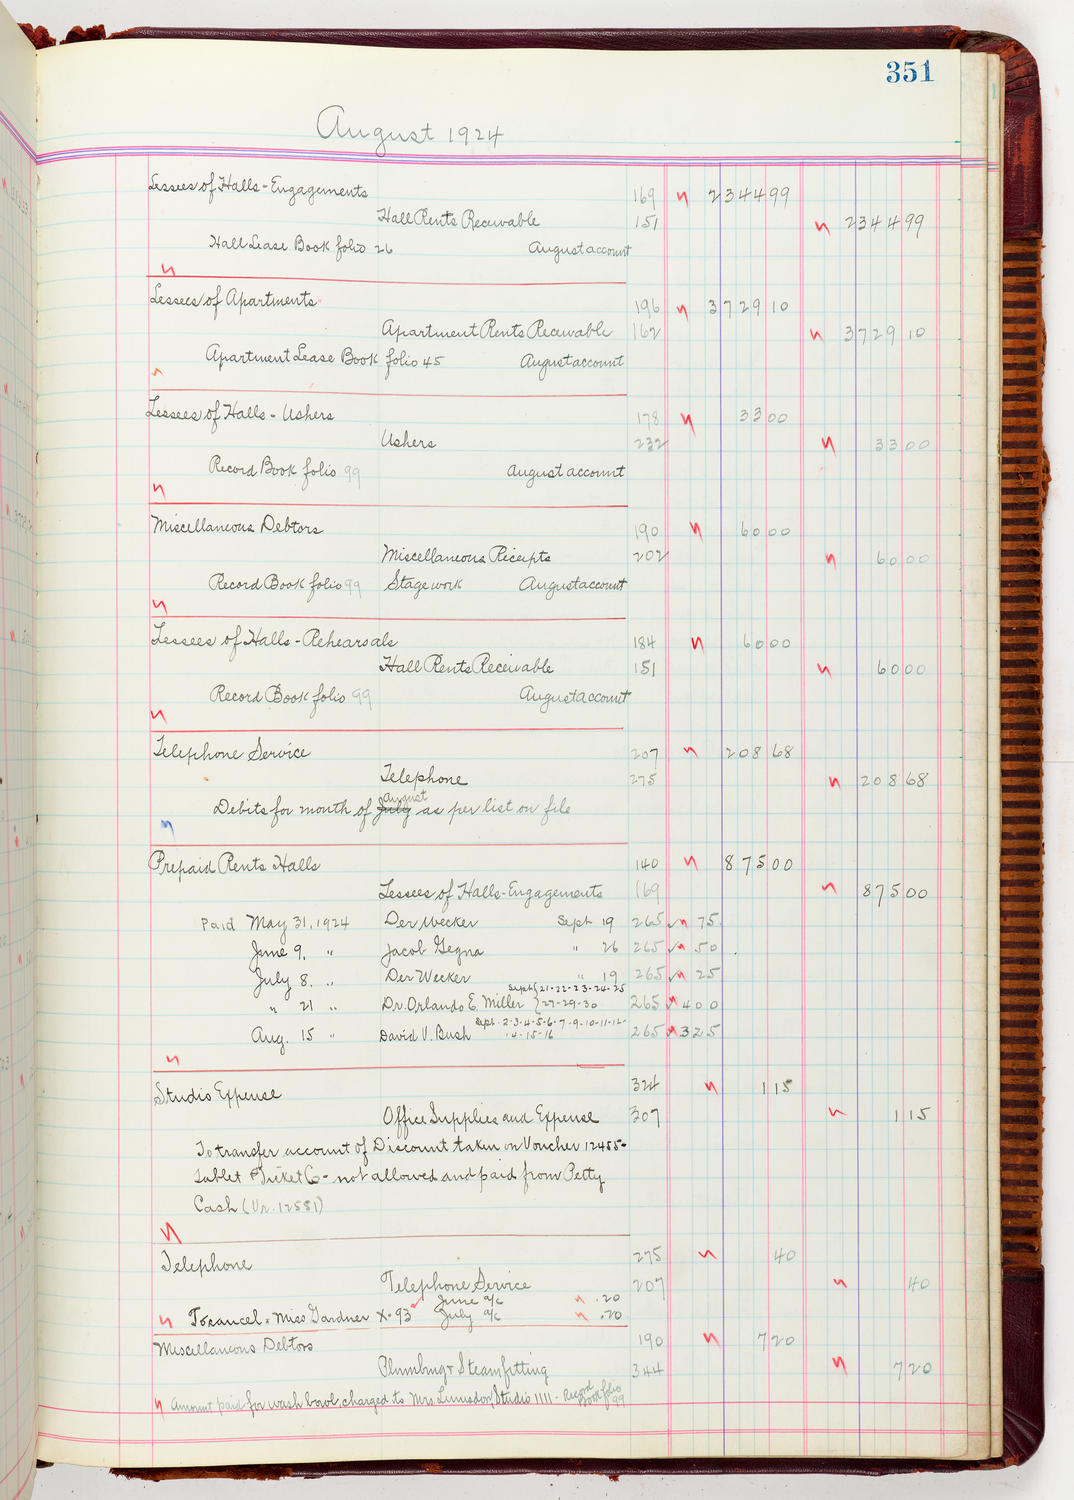 351
August 1924
Lessees of Halls - Engagements 169 2344 99
Hall Rents Receivable 151 2344 99
Hall Lease Book folio 26 August account
Lessees of Apartments 196 3729 10
Apartment Rents Receivable 162 3729 10
Apartment Lease Book folio 45 August account
Lessees of Halls - Ushers 178 33 00
Ushers 232 33 00
Record Book folio 99 August account
Miscellaneous Debtors 190 60 00
Miscellaneous Receipts 202 60 00
Record Book folio 99 Stage work August account
Lessees of Halls - Rehearsals 184 60 00
Hall Rents Receivable 151 60 00
Record Book folio 99 August account
Telephone Service 207 208 68
Telephone 275 208 68
august
Debits for month of July as per list on file
Prepaid Rents Halls 140 875 00
Lessees of Halls - Engagements 169 875 00
Paid May 31, 1924 Der Wecker Sept 19 265 75
June 9, " Jacob Gegna " 26 265 50
July 8, " Der Wecker " 19 265 25
Sept 21-22-23-24-25
" 21 " Dr. Orlando E. Miller 27-29-30 265 400
Sept. 2-3-4-5-6-7-9-10-11-12-
Aug. 15 " David V. Bush 14-15-16 265 325
Studio Expense 324 1 15
Office Supplies and Expense 307 1 15
To transfer account of Discount taken on Voucher 12455-
Tablet & Ticket Co - not allowed and paid from Petty
Cash (Vr. 12551)
Telephone 275 40
Telephone Service 207 40
June a/c .20
To cancel. Miss Gardner X-93 July a/c .20
Miscellaneous Debtors 190 7 20
Plumbing & Steamfitting 344 7 20
Amount paid for wash bowl, charged to Mrs. Studio 1111 - Record Book folio 99